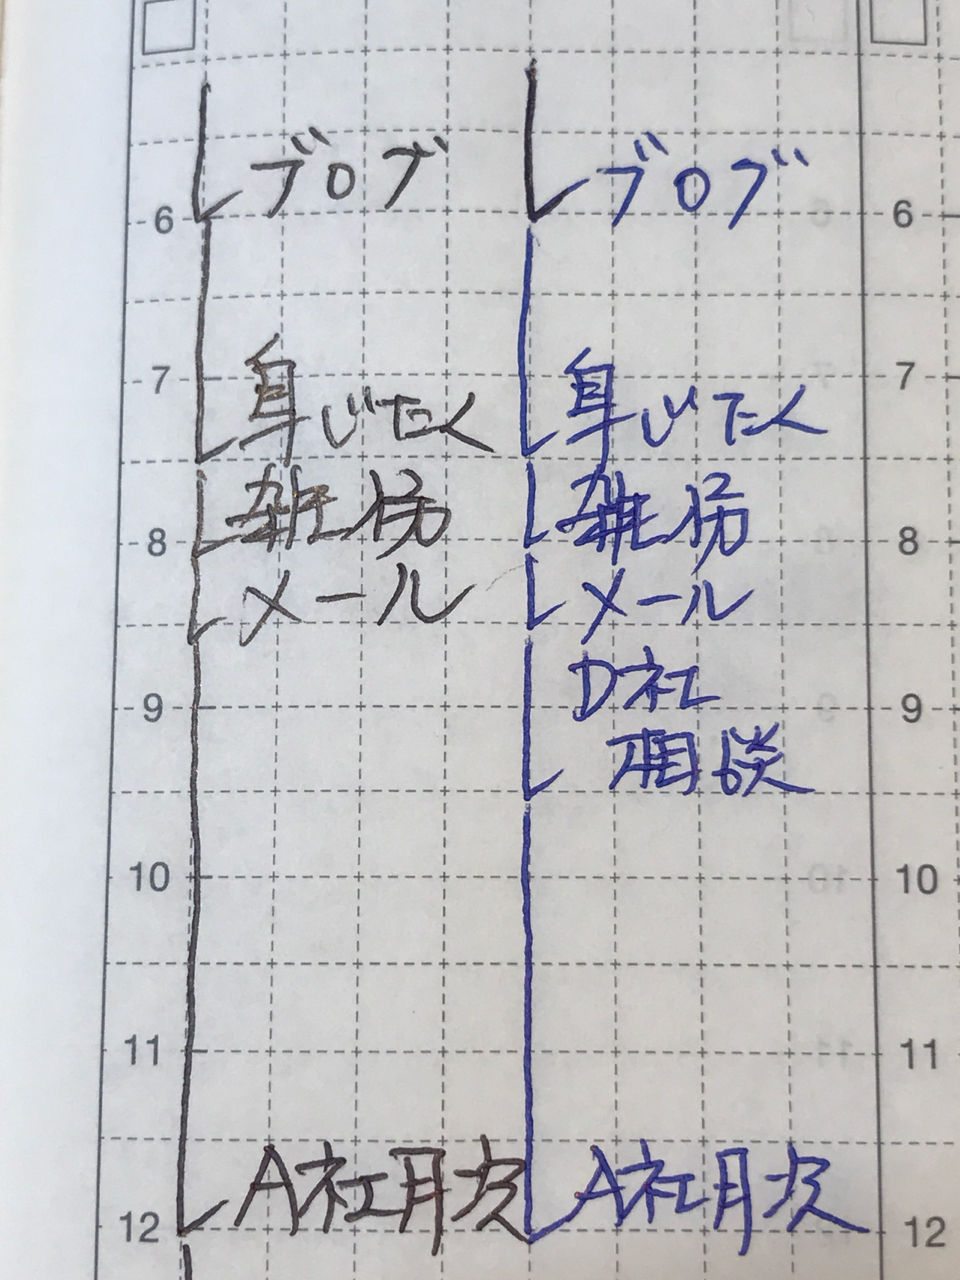 ブログ ブログ
6 6
7 7
身じたく 身じたく
雑務 雑務
8 8
メール メール
D社
9 9
相談
10 10
11 11
A社月次 A社月次
12 12